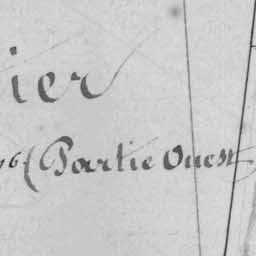 ier
(Partie Ouest